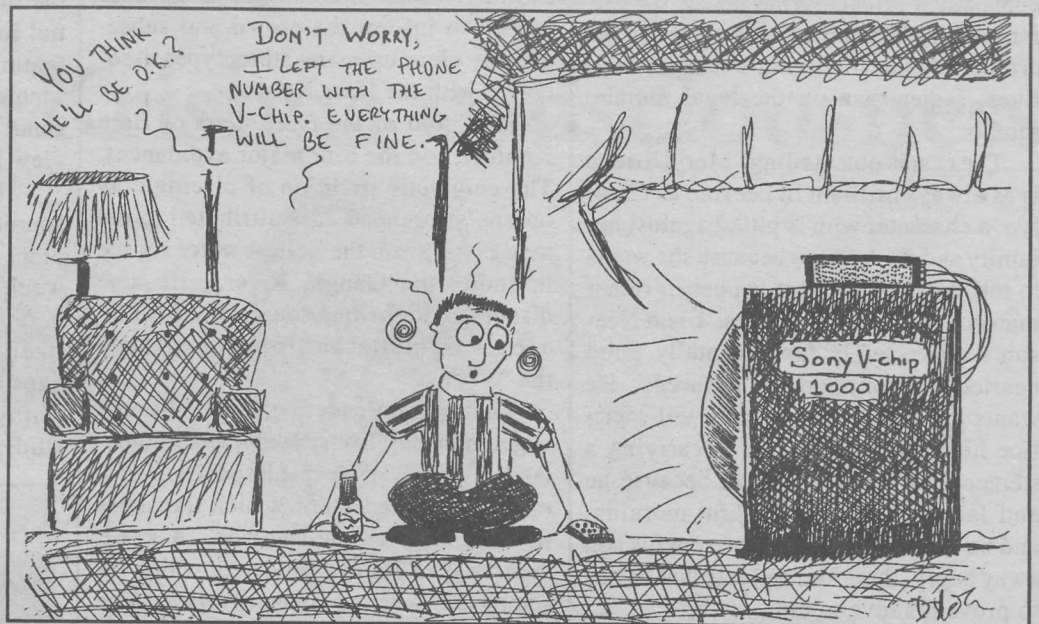 YOU THINK
HE'LL BE O.K.?
DON'T WORRY,
I LEFT THE PHONE
NUMBER WITH THE
V-CHIP. EVERYTHING
WILL BE FINE.
Sony V-chip
1000